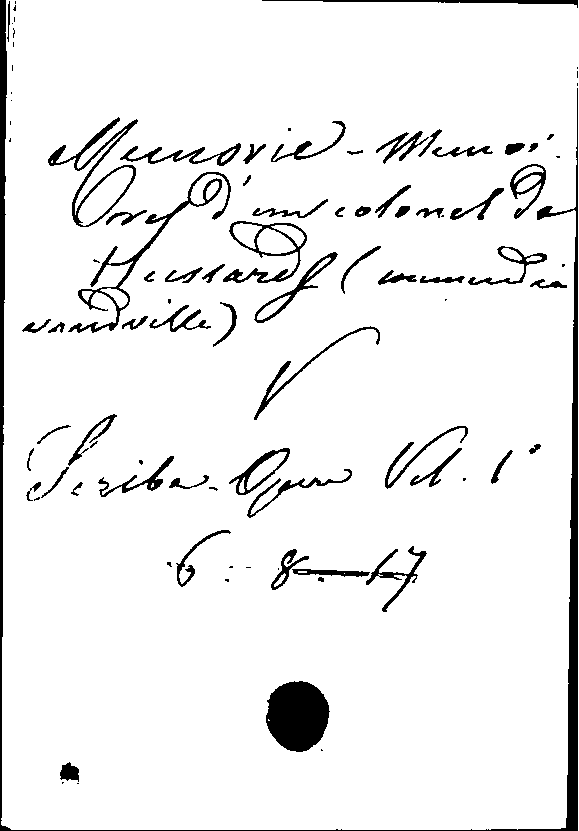 Memorie - Memoi-
res d'un colonel de
Hussards (comedia
vaudville)
V
Scribe - Opere Vol. 1°
6. 8. 17